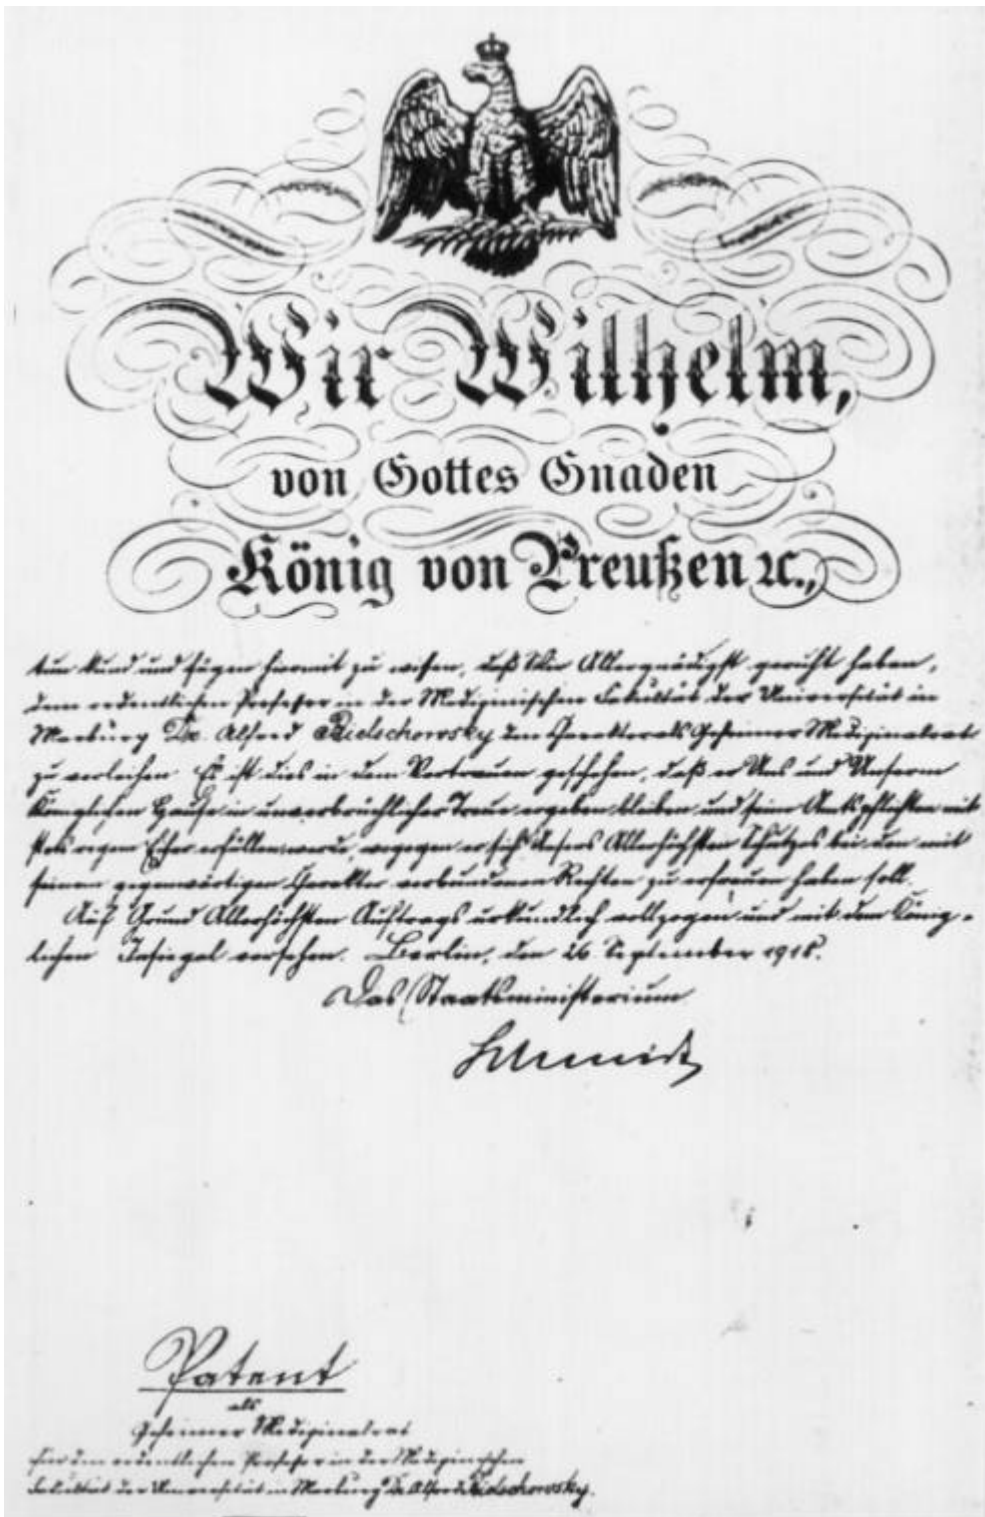 Wir Wilhelm,
von Gottes Gnaden
König von Preußen ꝛc.,
tun kund und fügen hiermit zu wissen, daß Wir Allergnädigst geruht haben,
dem ordentlichen Professor in der Medizinischen Fakultät der Universität in
Marburg Dr. Alfred Bielschowsky den Charakter als Geheimer Medizinalrat
zu verleihen. Es ist dies in dem Vertrauen geschehen, daß er Uns und Unserm
Königlichen Hause in unverbrüchlicher Treue ergeben bleiben und seine Amtspflichten mit
stets regem Eifer erfüllen werde, wogegen er sich Unsers Allerhöchsten Schutzes bei den mit
seinem gegenwärtigen Charakter verbundenen Rechten zu erfreuen haben soll.
Auf Grund Allerhöchsten Auftrags urkundlich vollzogen und mit dem König-
lichen Insiegel versehen. Berlin, den 26. September 1918.
Das Staatsministerium
Schmidt
Patent
als
Geheimer Medizinalrat
für den ordentlichen Professor in der Medizinischen
Fakultät der Universität in Marburg Dr. Alfred Bielschowsky.